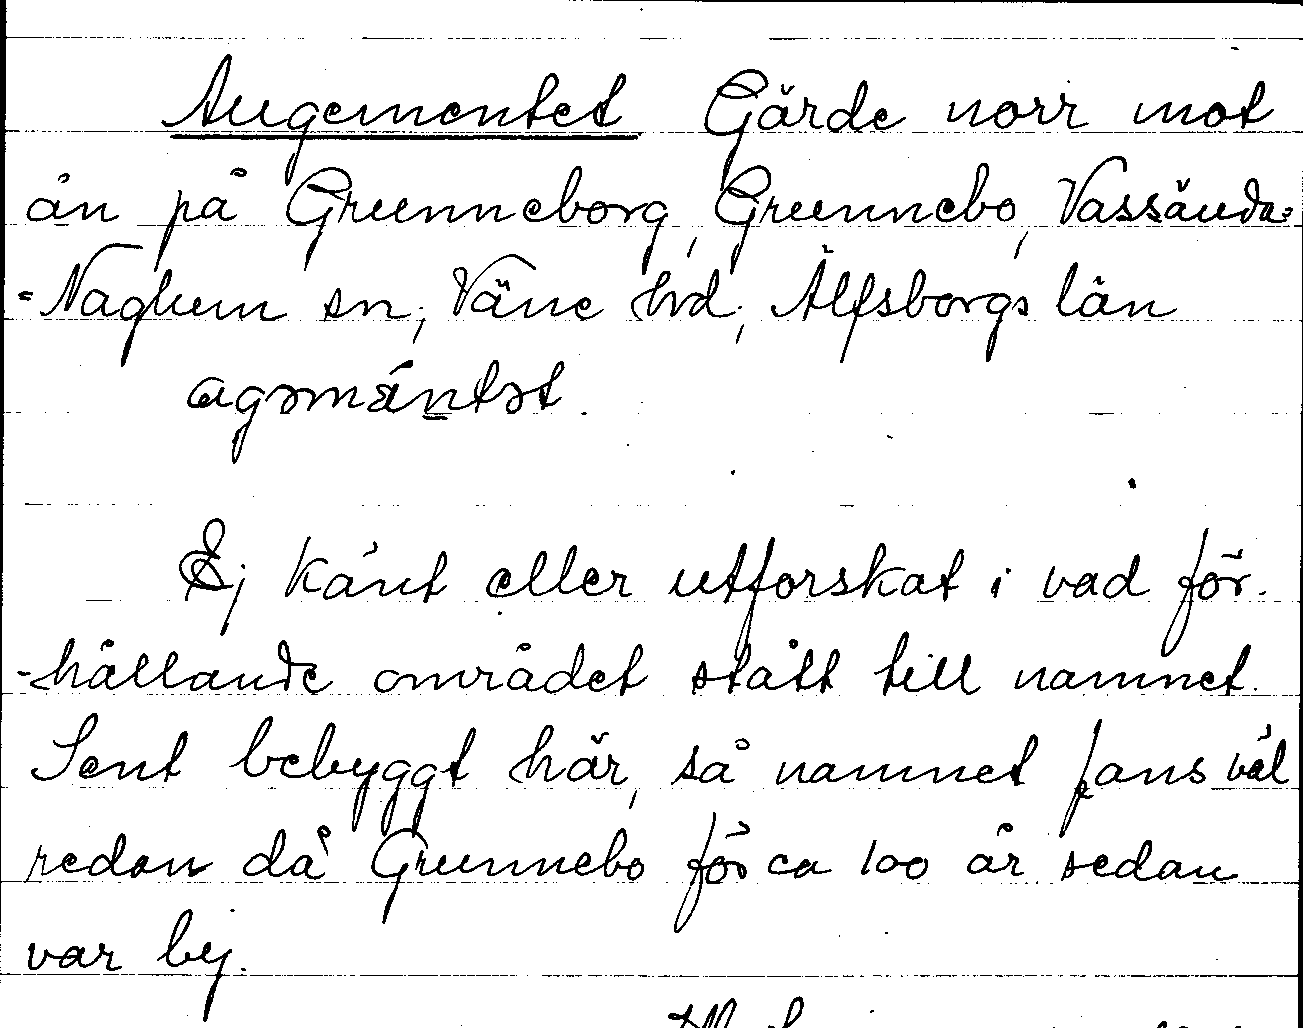 Augementet Gärde norr mot
ån på Grunneborg, Grunnebo, Vassända=
=Naglum sn, Väne hd, Älfsborgs län
agəmäntət.
Ej känt eller utforskat i vad för-
-hållande området stått till namnet.
Sent bebyggt här, så namnet fans väl
redan då Grunnebo för ca 100 år sedan
var by.